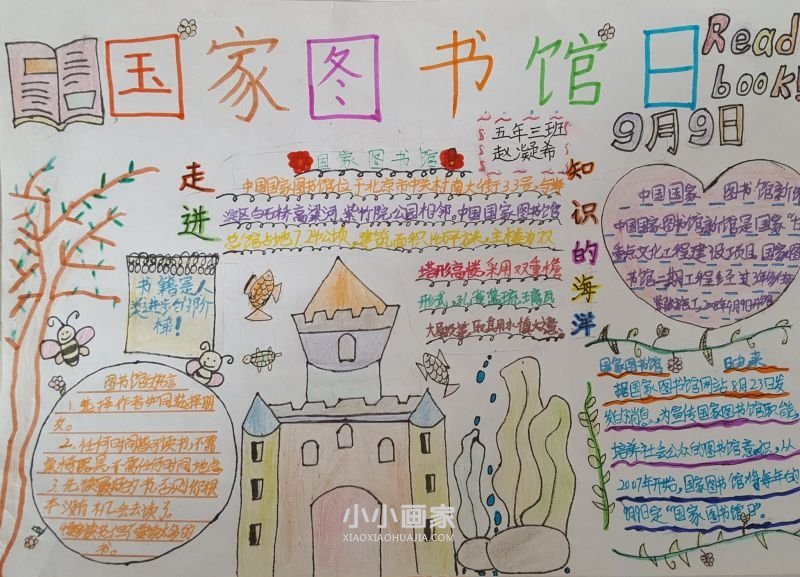 国家图书馆日
Read
book!
9月9日
五年三班
赵凝希
走进
国家图书馆
知识的海洋
中国国家图书馆位于北京市中关村南大街33号,与海
淀区白石桥高梁河、紫竹院公园相邻,中国国家图书馆
总馆占地7.24公顷,建筑面积14万平方米,主楼为双
塔形高楼,采用双重檐
形式,孔雀蓝琉璃瓦
大屋顶
书籍是人
类进步的阶
梯!
图书馆格言
1.选择作者如同选择朋
友。
2.任何时间都可读书,不需
3.先读最好的书,否则你根
本没有机会去读了。
书。
中国国家 图书馆新馆
中国国家图书馆新馆是国家“十
重点文化工程建设项目 国家图
书馆二期工程经过3年多的
2008年9月9日开馆
国家图书馆 日由来
据国家图书馆网站8月23日发
知的消息,为宣传国家图书馆职能,
培养社会公众的图书馆意识,从
2007年开始,国家图书馆将每年的
9月9日定“国家图书馆日”。
小小画家
XIAOXIAOHUAJIA.COM